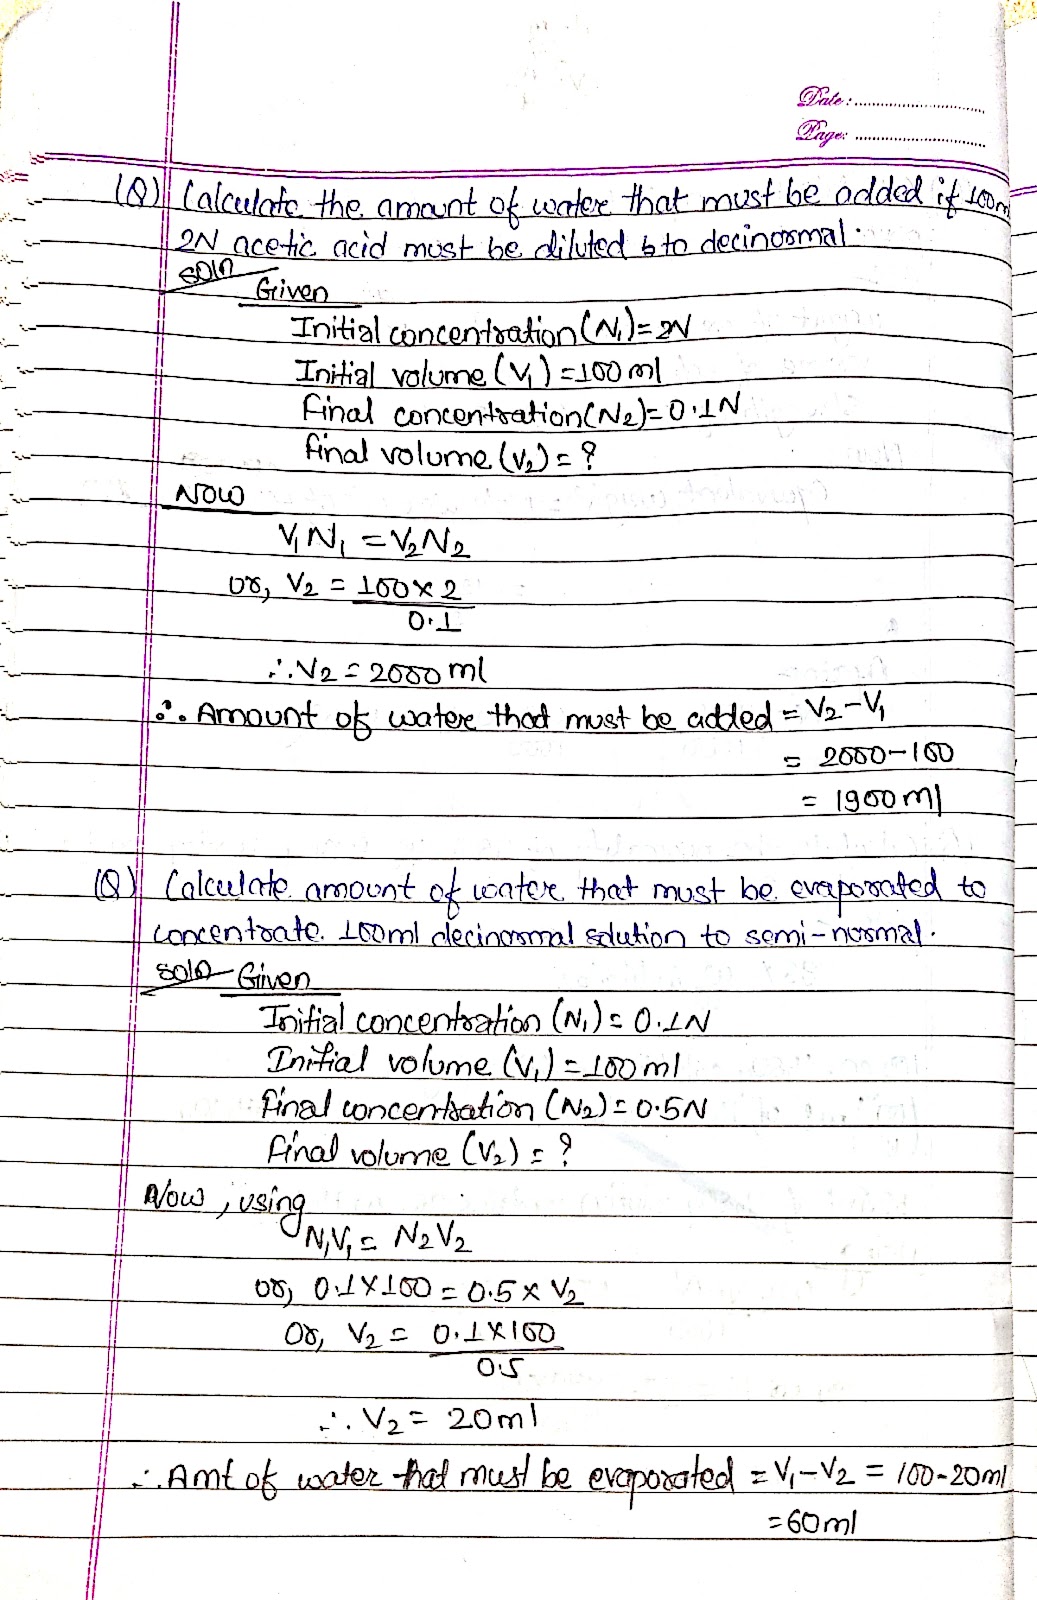 Date: ..............................
Page: ..............................
(Q) Calculate the amount of water that must be added if 100m
2N acetic acid must be diluted to decinormal.
Soln
Given
Initial concentration (N₁) = 2N
Initial volume (V₁) = 100 ml
final concentration (N₂) = 0.1N
final volume (V₂) = ?
NOW
V₁N₁ = V₂N₂
or, V₂ = 100 × 2
0.1
∴ V₂ = 2000 ml
∴ Amount of water that must be added = V₂ - V₁
= 2000 - 100
= 1900 ml
(Q) Calculate amount of water that must be evaporated to
concentrate 100ml decinormal solution to semi-normal.
Soln Given
Initial concentration (N₁) = 0.1N
Initial volume (V₁) = 100 ml
final concentration (N₂) = 0.5N
final volume (V₂) = ?
Now, using
N₁V₁ = N₂V₂
or, 0.1 × 100 = 0.5 × V₂
or, V₂ = 0.1 × 100
0.5
∴ V₂ = 20ml
∴ Amt of water that must be evaporated = V₁ - V₂ = 100 - 20ml
= 60ml